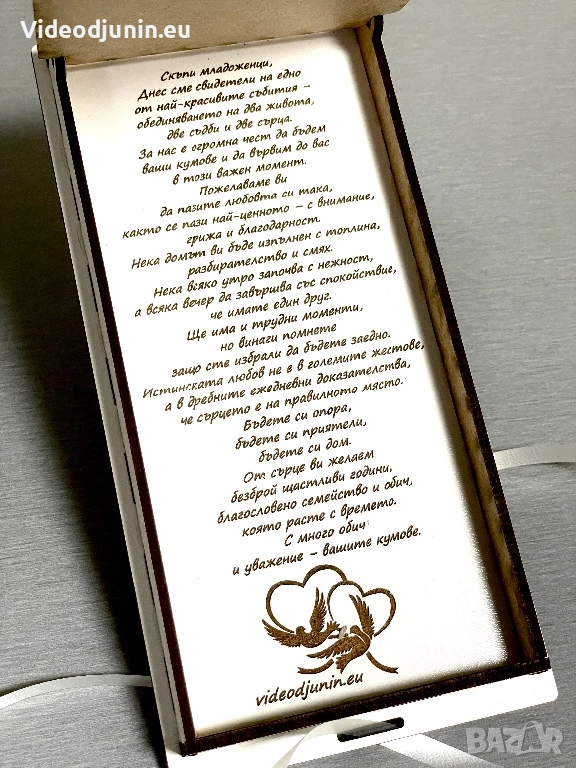 Videodjunin.eu
Скъпи младоженци,
Днес сме свидетели на едно
от най-красивите събития –
обединяването на два живота,
две съдби и две сърца.
За нас е огромна чест да бъдем
ваши кумове и да вървим до вас
в този важен момент.
Пожелаваме ви
да пазите любовта си така,
както се пази най-ценното – с внимание,
грижа и благодарност.
Нека домът ви бъде изпълнен с топлина,
разбирателство и смях.
Нека всяко утро започва с нежност,
а всяка вечер да завършва със спокойствие,
че имате един друг.
Ще има и трудни моменти,
но винаги помнете
защо сте избрали да бъдете заедно.
Истинската любов не е в големите жестове,
а в дребните ежедневни доказателства,
че сърцето е на правилното място.
Бъдете си опора,
бъдете си приятели,
бъдете си дом.
От сърце ви желаем
безброй щастливи години,
благословено семейство и обич,
която расте с времето.
С много обич
и уважение – вашите кумове.
videodjunin.eu
Videodjunin.eu
BAZAR